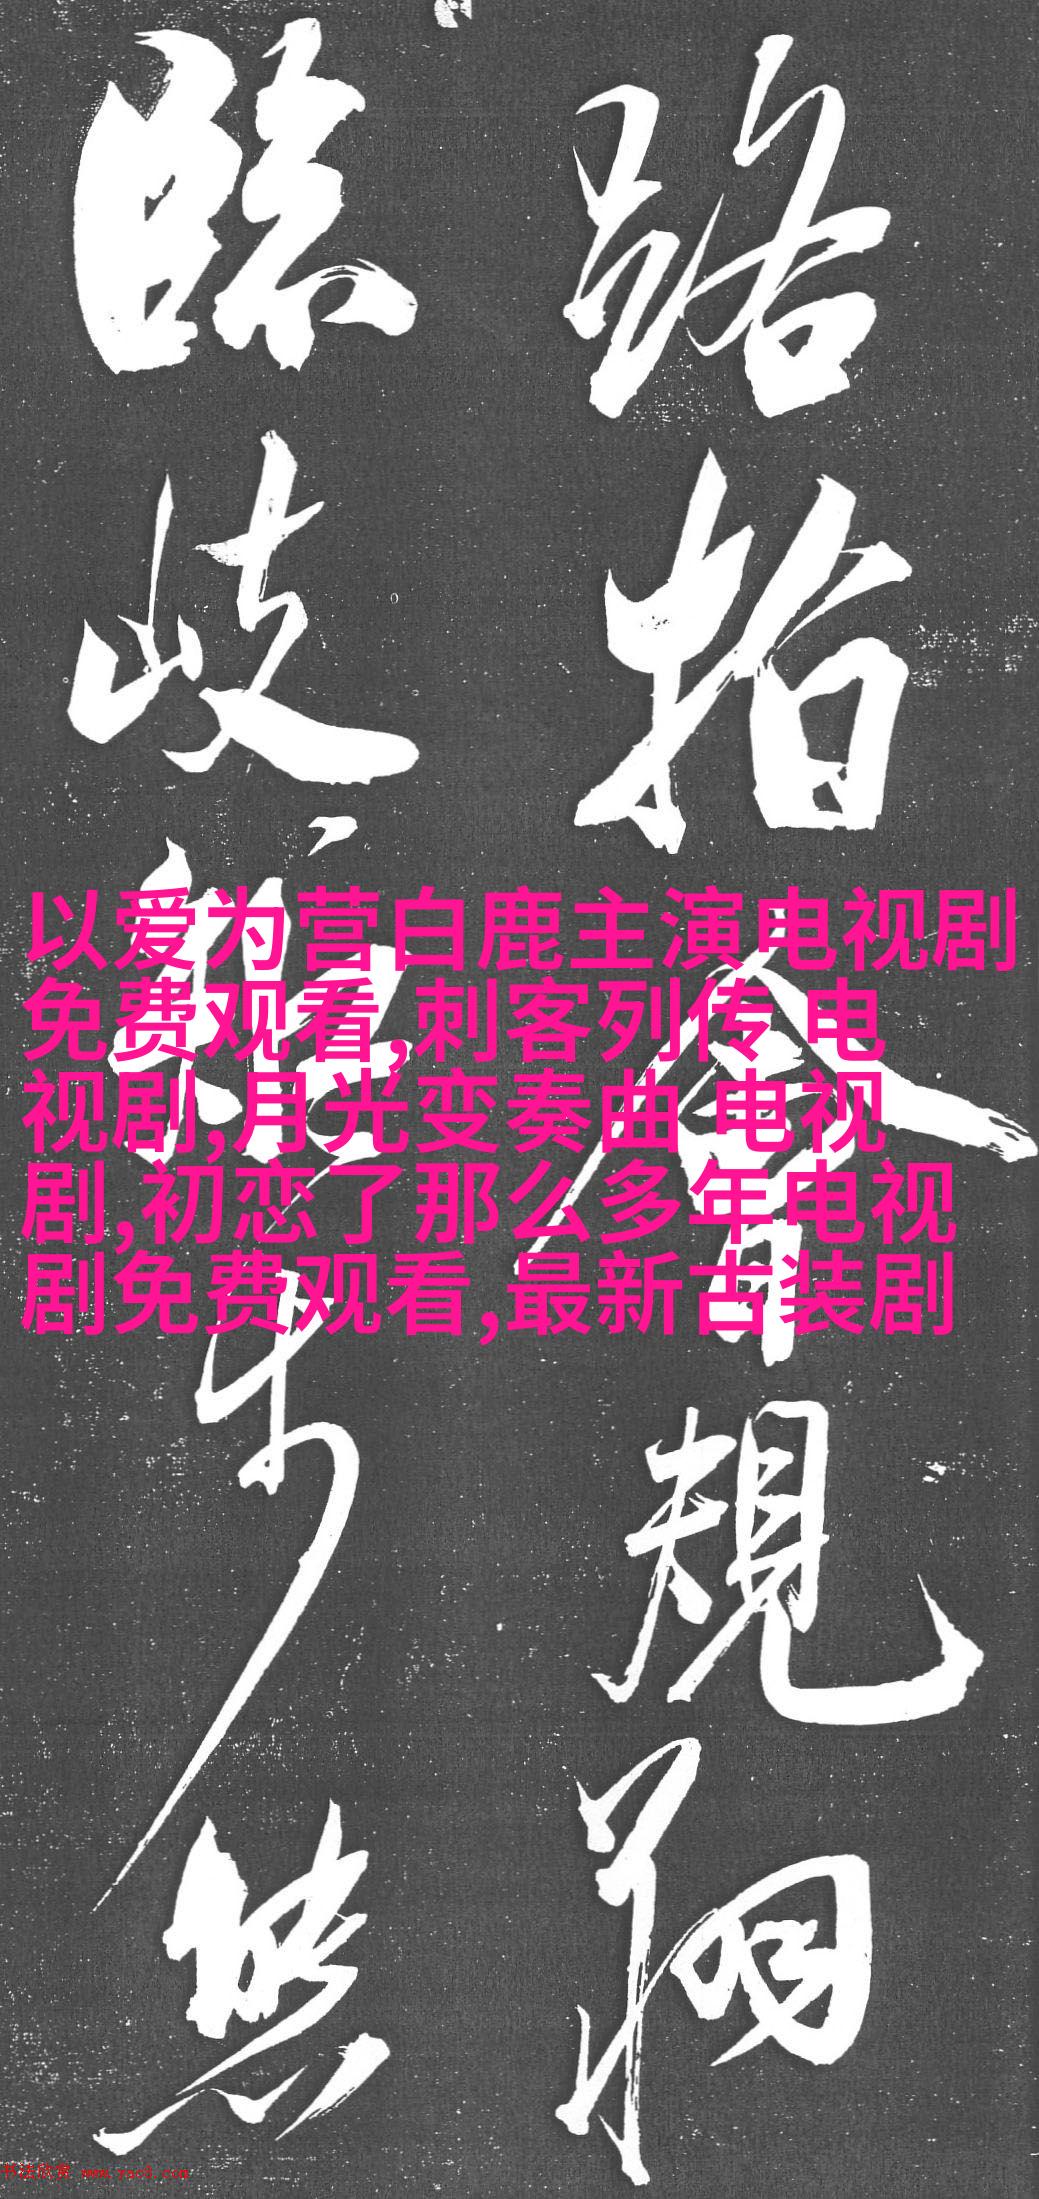 路指會規翔
臨岐步
以爱为营白鹿主演电视剧
免费观看,刺客列传 电
视剧,月光变奏曲 电视
剧,初恋了那么多年电视
剧免费观看,最新古装剧
书法欣赏 www.yac8.com